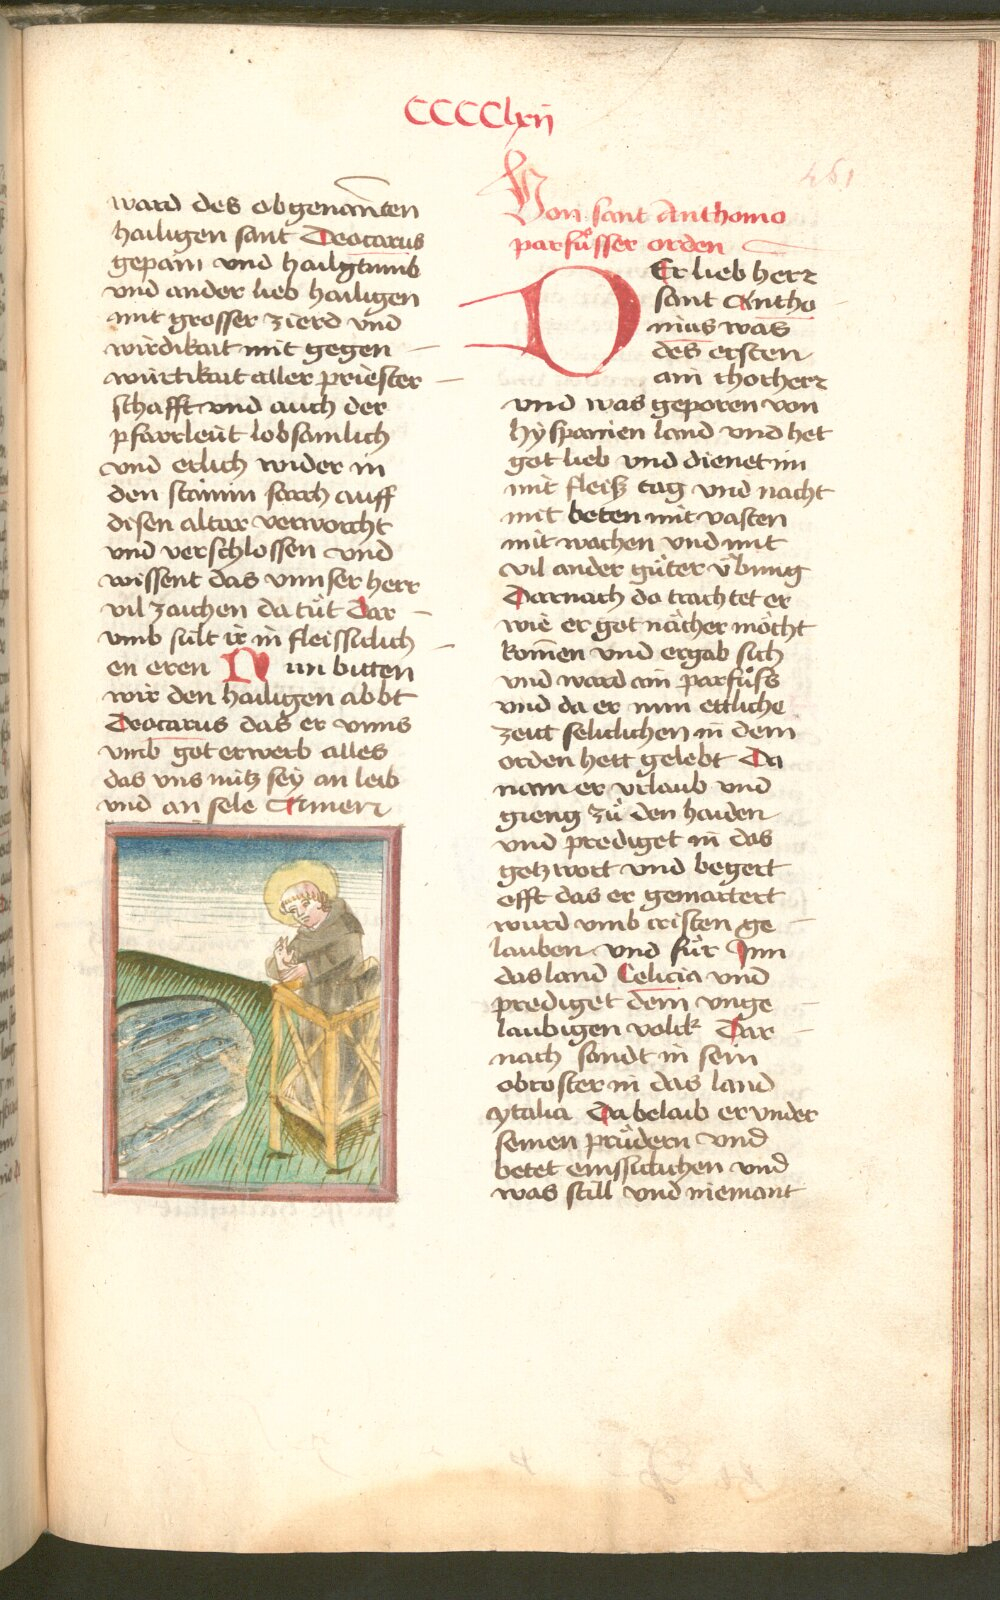 CCCCClxij
461
ward des obgenanten
hailigen sant Deocarus
gepain vnd hailgtumb
vnd ander lieb hailigen
mit grosser zierd vnd
wirdikait mit gegen
würtikait aller priester
schafft vnd auch der
pfarrleüt lobsamlich
vnd erlich wider in
den stainin sarch auff
disen altar verworcht
vnd verschlossen vnd
wissent das vnnser herr
vil zaichen da tüt Dar
vmb sült ir in fleissiclich
en eren Nun bitten
wir den hailigen abbt
Deocarus das er vnns
vmb got erwerb alles
das vns nütz sey an leib
vnd an sele Amen
Von sant Anthonio
parfüsser orden
DEr lieb herr
sant Antho
nius was
des ersten
ain chorherr
vnd was geporen von
hyspanien land vnd het
got lieb vnd dienet im
mit fleiß tag vnd nacht
mit beten mit vasten
mit wachen vnd mit
vil ander güter übung
Darnach da trachtet er
wie er got nächer möcht
komen vnd ergab sich
vnd ward ain parfüss
vnd da er nun ettliche
zeut seliclichen in dem
orden hett gelebt Da
nam er vrlaub vnd
gieng zü den haiden
vnd prediget in das
gotz wort vnd begert
offt das er gemartert
wurd vmb cristen ge
lauben vnd für Inn
das land Celicia vnd
prediget dem vnge
laubigen volck Dar
nach sandt in sein
obroster in das land
ytalia Da belaib er vnder
seinen prüdern vnd
betet emssiclichen vnd
was still vnd niemant